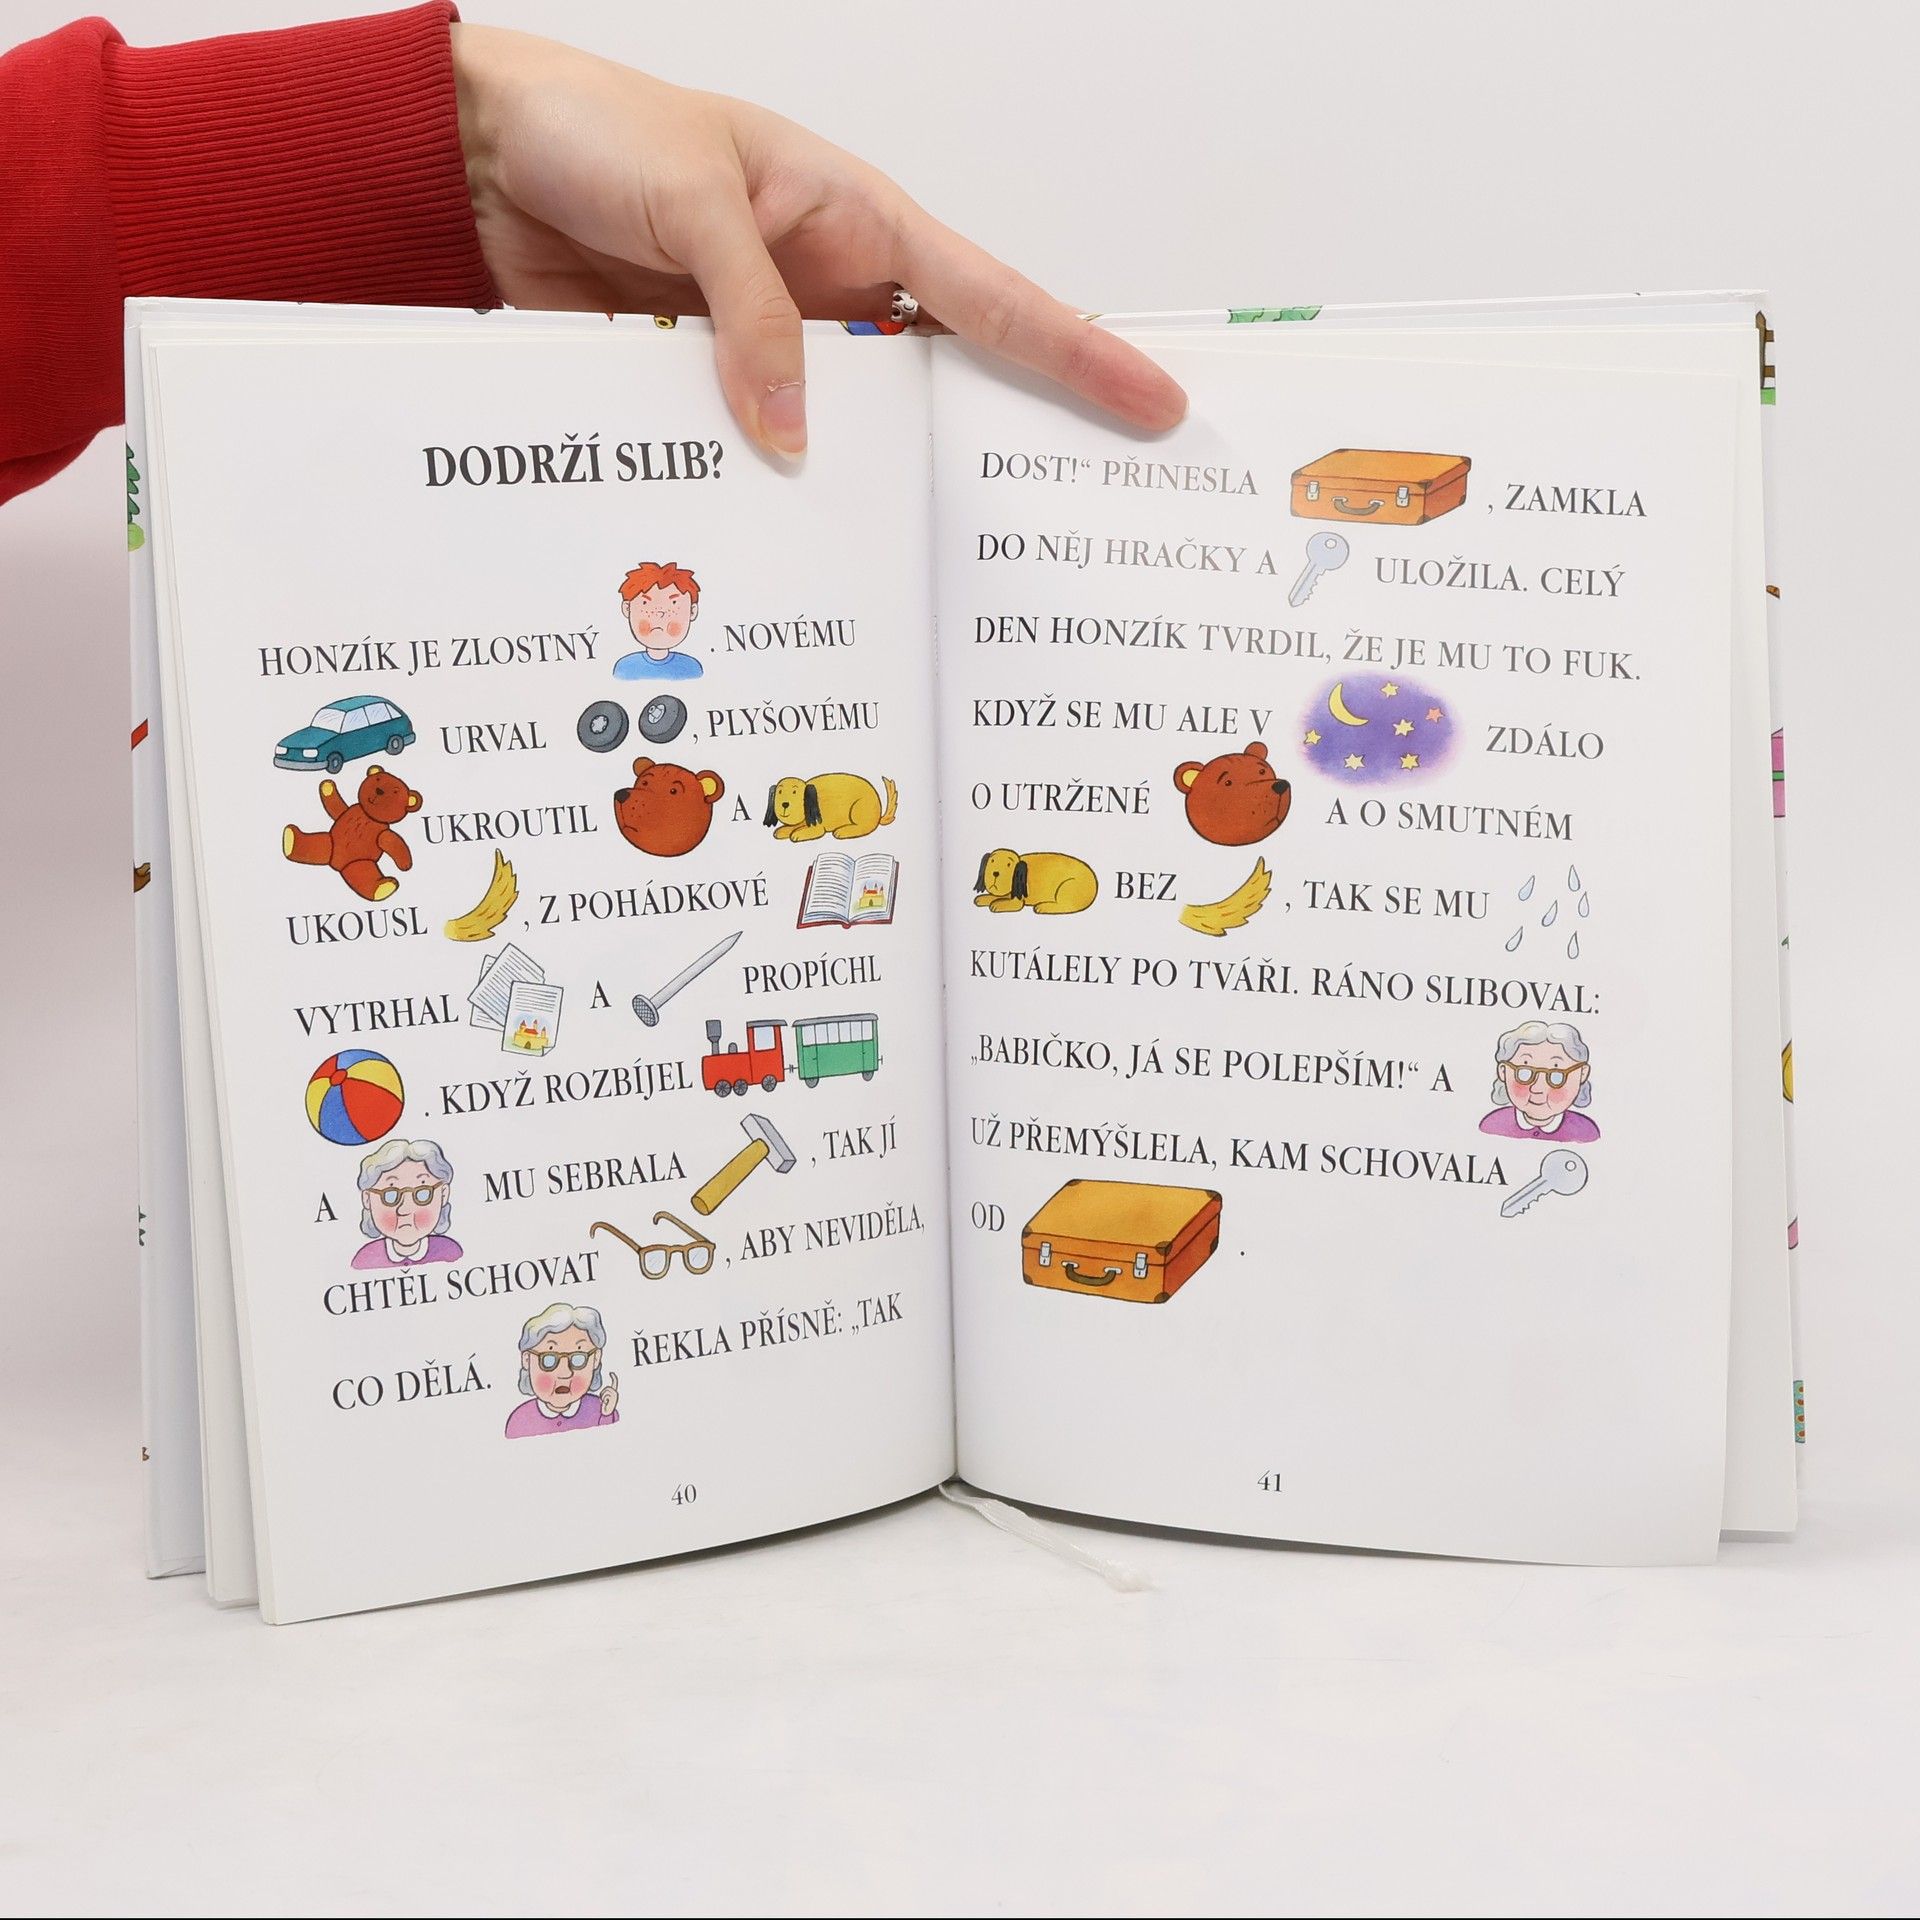 DODRŽÍ SLIB?
HONZÍK JE ZLOSTNÝ . NOVÉMU
URVAL , PLYŠOVÉMU
UKROUTIL A
UKOUSL , Z POHÁDKOVÉ
VYTRHAL A PROPÍCHL
. KDYŽ ROZBÍJEL
A MU SEBRALA , TAK JÍ
CHTĚL SCHOVAT , ABY NEVIDĚLA,
CO DĚLÁ. ŘEKLA PŘÍSNĚ: „TAK
40
DOST!“ PŘINESLA , ZAMKLA
DO NĚJ HRAČKY A ULOŽILA. CELÝ
DEN HONZÍK TVRDIL, ŽE JE MU TO FUK.
KDYŽ SE MU ALE V ZDÁLO
O UTRŽENÉ A O SMUTNÉM
BEZ , TAK SE MU
KUTÁLELY PO TVÁŘI. RÁNO SLIBOVAL:
„BABIČKO, JÁ SE POLEPŠÍM!“ A
UŽ PŘEMÝŠLELA, KAM SCHOVALA
OD .
41